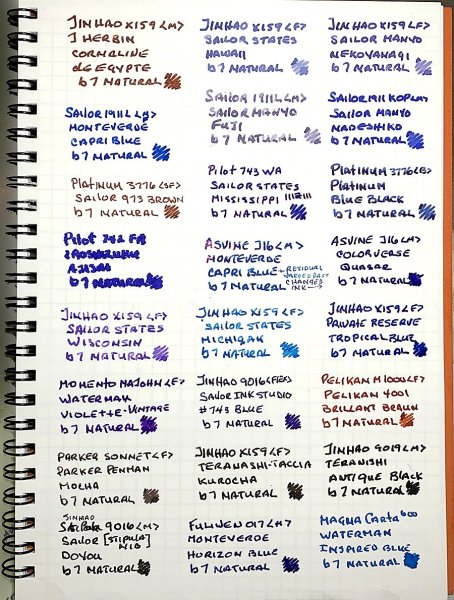 JINHAO X159 <M>
J HERBIN
CORNALINE
de EGYPTE
b7 NATURAL
JINHAO X159 <F>
SAILOR STATES
HAWAII
b7 NATURAL
JINHAO X159 <F>
SAILOR MANYO
NEKOYANAGI
b7 NATURAL
SAILOR 1911L <M>
MONTEVERDE
CAPRI BLUE
b7 NATURAL
SAILOR 1911L <M>
SAILOR MANYO
FUJI
b7 NATURAL
SAILOR 1911 KOP <M>
SAILOR MANYO
NADESHIKO
b7 NATURAL
PLATINUM 3776 <SF>
SAILOR 973 BROWN
b7 NATURAL
PILOT 743 WA
SAILOR STATES
MISSISSIPPI
b7 NATURAL
PLATINUM 3776 <B>
PLATINUM
BLUE BLACK
b7 NATURAL
PILOT 742 FA
b7 NATURAL
ASVINE J16 <M>
MONTEVERDE
CAPRI BLUE ← RESIDUAL
CHANGES
INK →
b7 NATURAL
ASVINE J16 <M>
COLORVERSE
QUASAR
b7 NATURAL
JINHAO X159 <F>
SAILOR STATES
WISCONSIN
b7 NATURAL
JINHAO X159 <F>
SAILOR STATES
MICHIGAN
b7 NATURAL
JINHAO X159 <F>
PRIVATE RESERVE
TROPICAL BLUE
b7 NATURAL
MOMENTO NAJOHN <F>
WATERMAN
VIOLETTE-VINTAGE
b7 NATURAL
JINHAO 9016 <FLEX>
SAILOR INK STUDIO
#743 BLUE
b7 NATURAL
PELIKAN M1000 <F>
PELIKAN 4001
BRILLANT BRAUN
b7 NATURAL
PARKER SONNET <F>
PARKER PENMAN
MOCHA
b7 NATURAL
JINHAO X159 <F>
TERANASHI-TACCIA
KUROCHA
b7 NATURAL
JINHAO 9019 <M>
TERANISHI
ANTIQUE BLACK
b7 NATURAL
JINHAO
9016 <M>
SAILOR [STIPULA]
NIB
DOYOU
b7 NATURAL
FULIWEN 017 <M>
MONTEVERDE
HORIZON BLUE
b7 NATURAL
MAGNA CARTA 600
WATERMAN
INSPIRED BLUE
b7 NATURAL